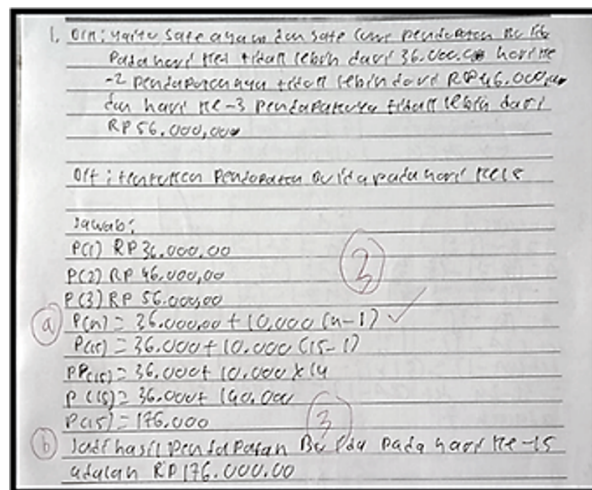 1. Dik : yaitu sate ayam dan sate pendapatan Bu Ida
Pada hari ke1 tidak lebih dari 36.000.00 hari ke
-2 pendapatannya tidak lebih dari RP46.000,00
dan hari ke-3 pendapatannya tidak lebih dari
RP 56.000,00
Dit : tentukan Pendapatan Bu Ida pada hari ke
Jawab :
P(1) RP 36.000,00
P(2) RP 46.000,00
P(3) RP 56.000,00
3
a P(n) = 36.000,00 + 10,000 (n-1)
P(15) = 36.000 + 10.000 (15-1)
PP(15) = 36.000 + 10.000 x 14
P(15) = 36.000 + 140.000
P(15) = 176.000
3
b Jadi hasil Pendapatan Bu Ida Pada hari ke-15
adalah RP 176.000.00